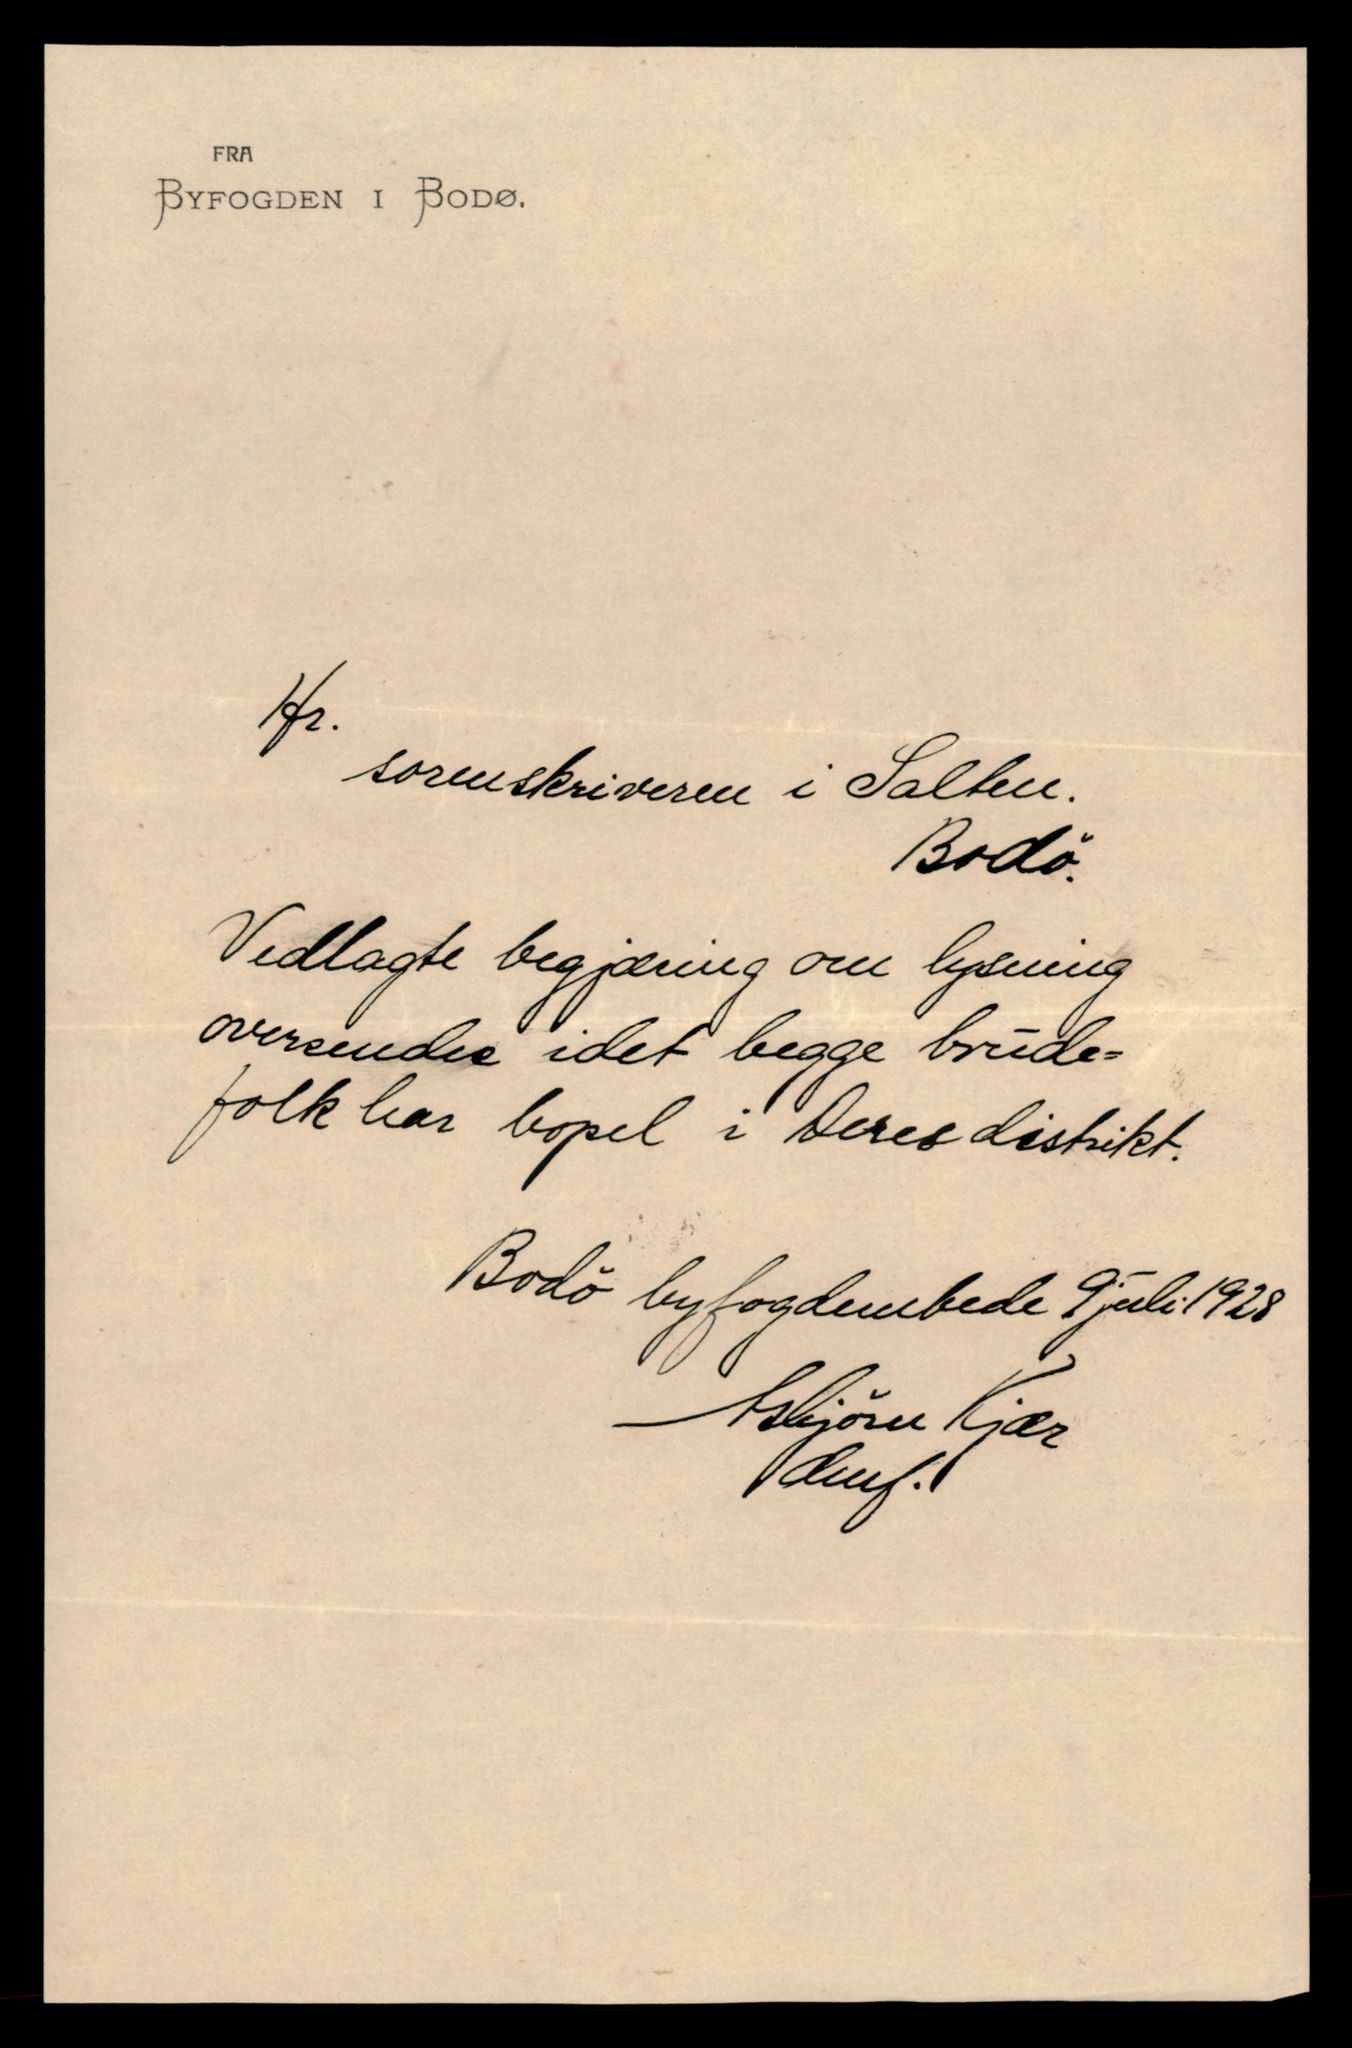 FRA
BYFOGDEN I BODØ.
Hr.
sorenskriveren i Salten.
Bodö.
Vedlagte begjæring om lysning
oversendes idet begge brude=
folk har bopel i Deres distrikt.
Bodö byfogdembede 9 juli 1928
Asbjörn Kjær
dmf.